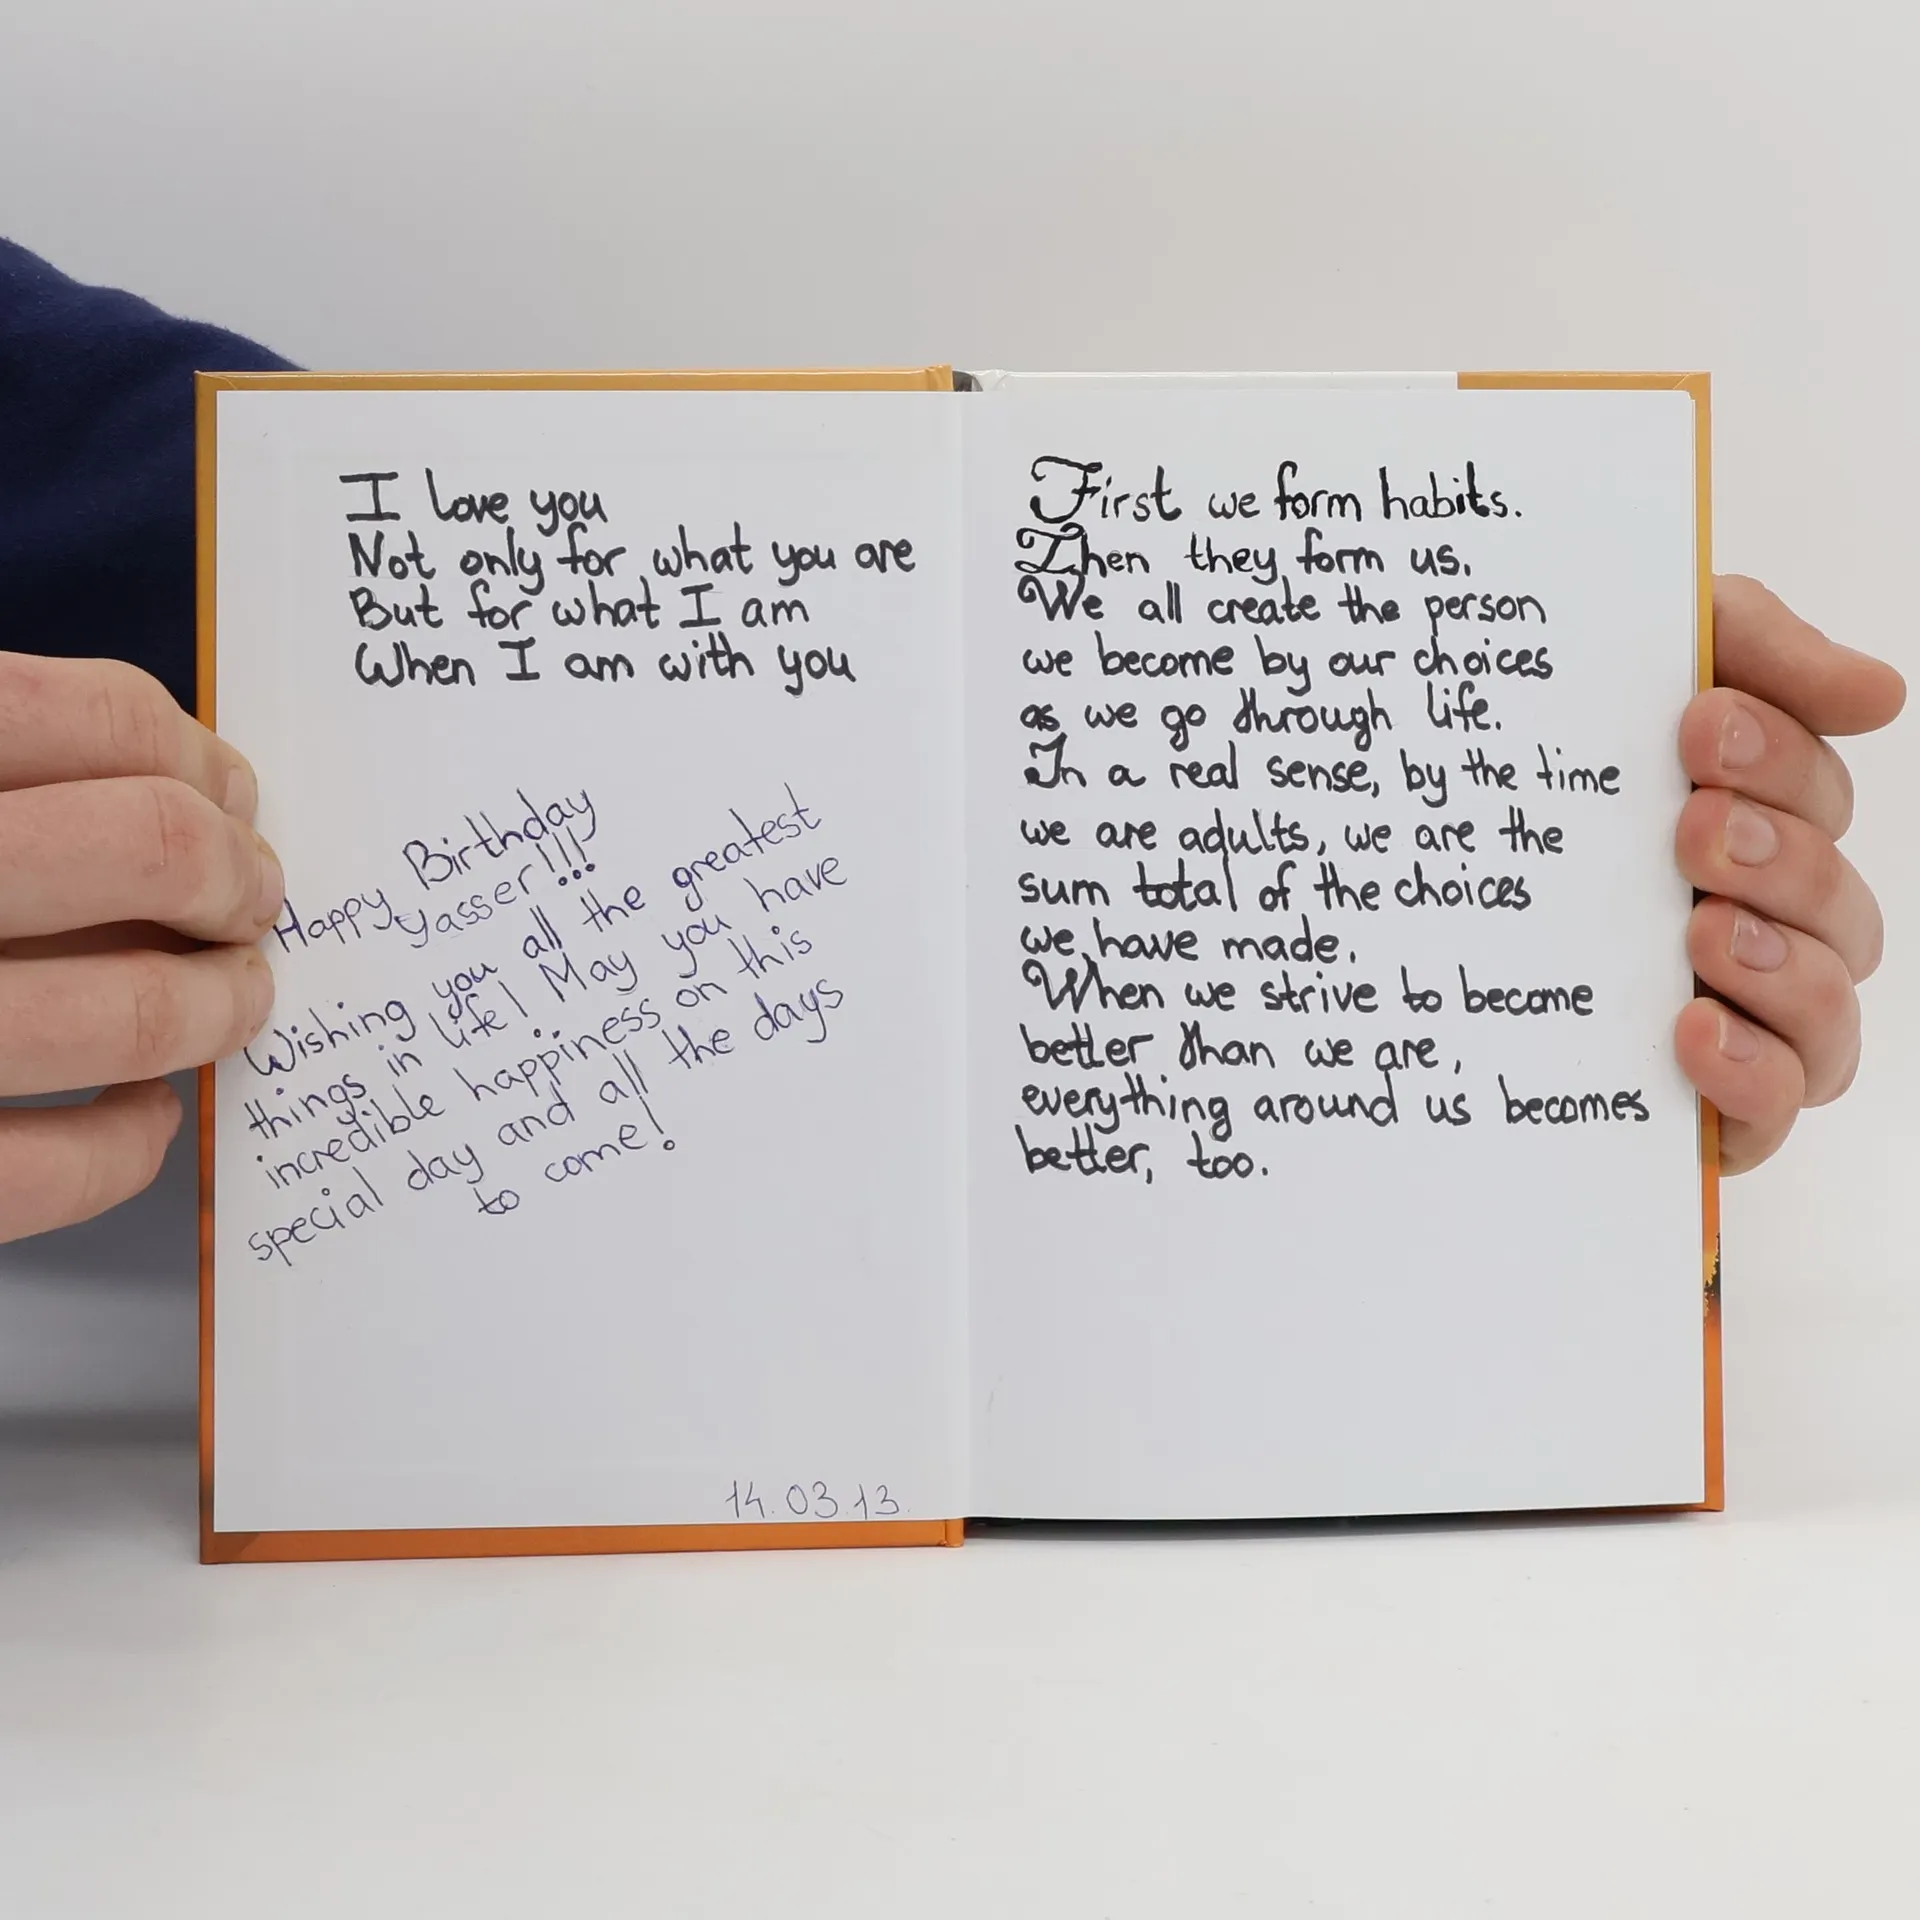 I love you
Not only for what you are
But for what I am
When I am with you
Happy Birthday
Yasser!!!
Wishing you all the greatest
things in life! May you have
incredible happiness on this
special day and all the days
to come!
14.03.13.
First we form habits.
Then they form us.
We all create the person
we become by our choices
as we go through life.
In a real sense, by the time
we are adults, we are the
sum total of the choices
we have made.
When we strive to become
better than we are,
everything around us becomes
better, too.